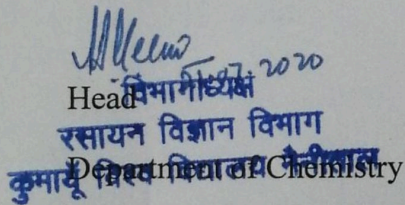 07.2020
Head विभागाध्यक्ष
रसायन विज्ञान विभाग
Department of Chemistry
कुमायूँ विश्व विद्यालय नैनीताल